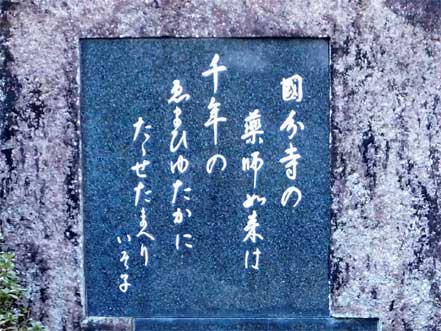 國分寺の
薬師如来は
千年の
ゑまひゆたかに
たゝせたまへり
いそ子